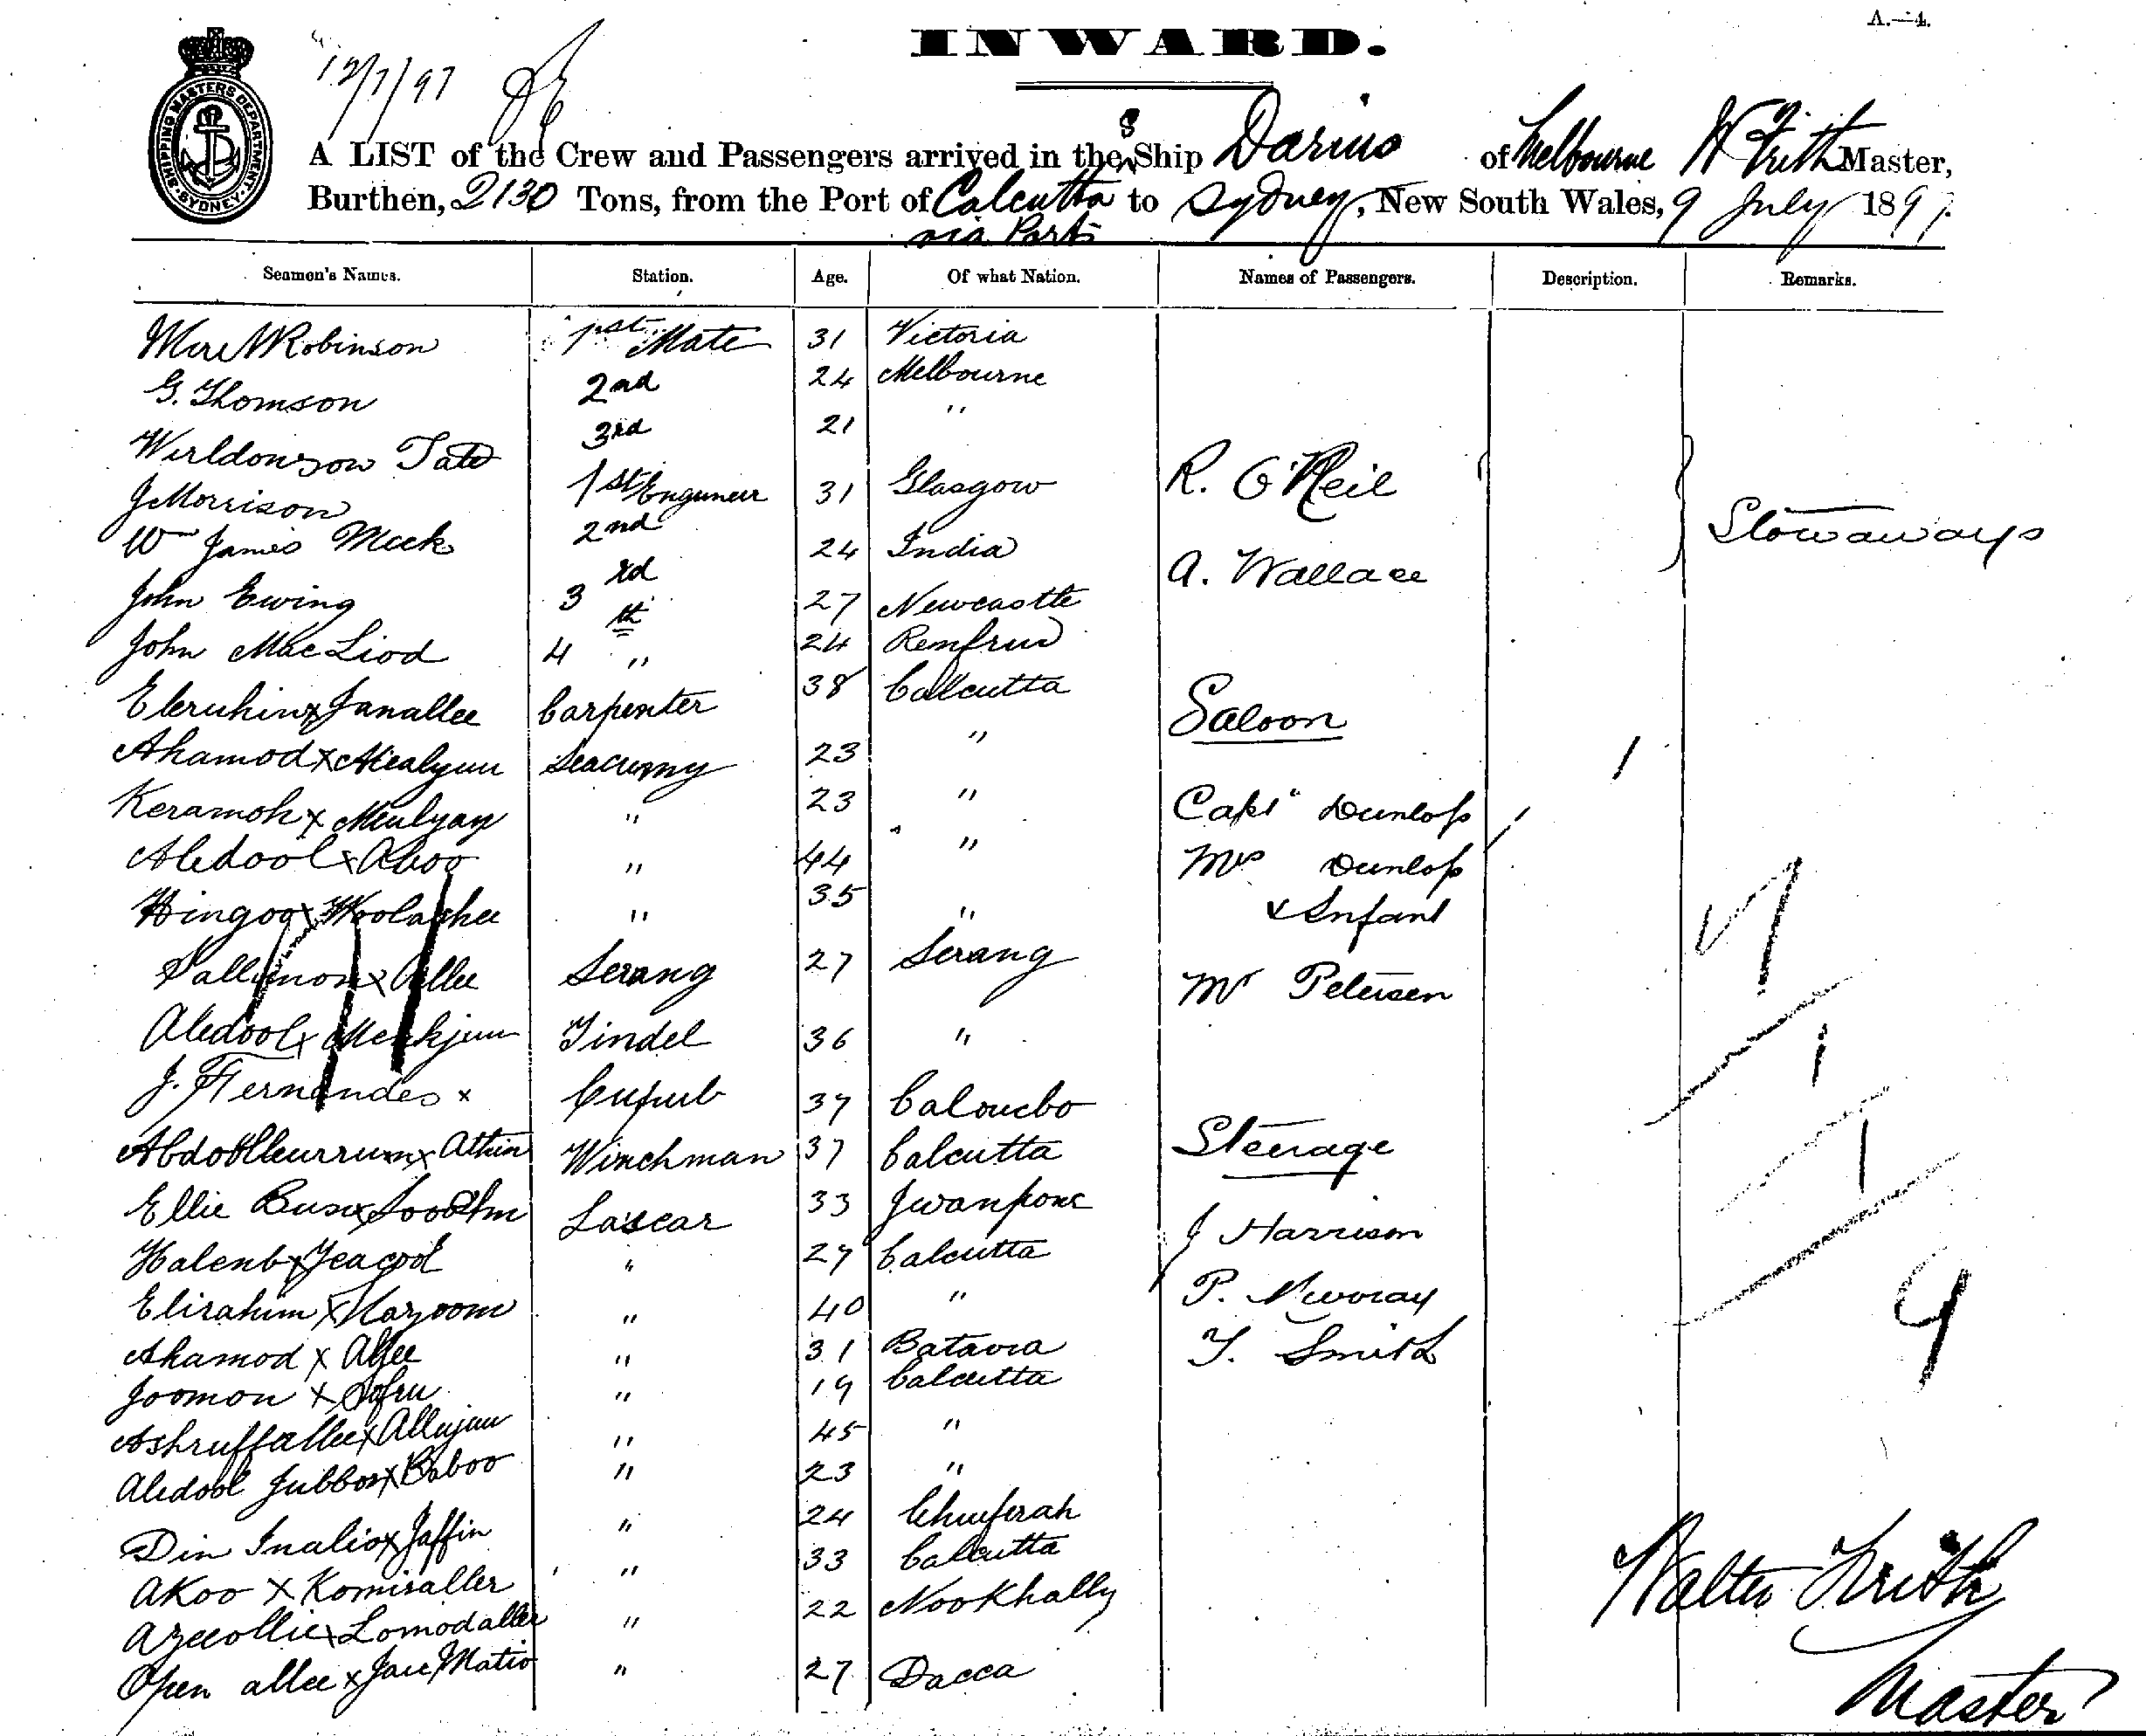 A.—4.
INWARD.
12/7/97
SHIPPING MASTERS DEPARTMENT SYDNEY
A LIST of the Crew and Passengers arrived in the S Ship Darius of Melbourne W Frith Master,
Burthen, 2130 Tons, from the Port of Calcutta to Sydney, New South Wales, 9 July 1897.
via Ports
Seamen's Names. Station. Age. Of what Nation. Names of Passengers. Description. Remarks.
Robinson 1st Mate 31 Victoria
G. Thomson 2nd 24 Melbourne
Tate 3rd 21 "
J Morrison 1st Engineer 31 Glasgow R. O'Neil Stowaways
W James Meek 2nd 24 India A. Wallace
John Ewing 3rd 27 Newcastle
John Mac Liod 4th " 24 Renfrew
x Janallee Carpenter 38 Calcutta Saloon
Ahamod x Seacunny 23 "
Keramoh x " 23 " Capt Dunlop
Abdool x Aboo " 44 " Mrs Dunlop
Hingoo x " 35 " & Infant
x Allee Serang 27 Serang Mr Petersen
Abdool x Tindel 36 "
J. Fernandes x 37
x Winchman 37 Calcutta Steerage
Ellie Bux x Lascar 33 J Harrison
x " 27 Calcutta P. Murray
Elirahim x " 40 " T. Smith
Ahamod x " 31 Batavia
Joomon x " 19 Calcutta
Ashruffallee x Allyjan " 45 "
Abdool Jubbor x Baboo " 23 "
Din x Jaffin " 24
Akoo x Komiraller " 33 Calcutta
x Lomodaller " 22 Nookhally
Open allee x " 27 Dacca
7
1
1
9
Walter Frith
Master